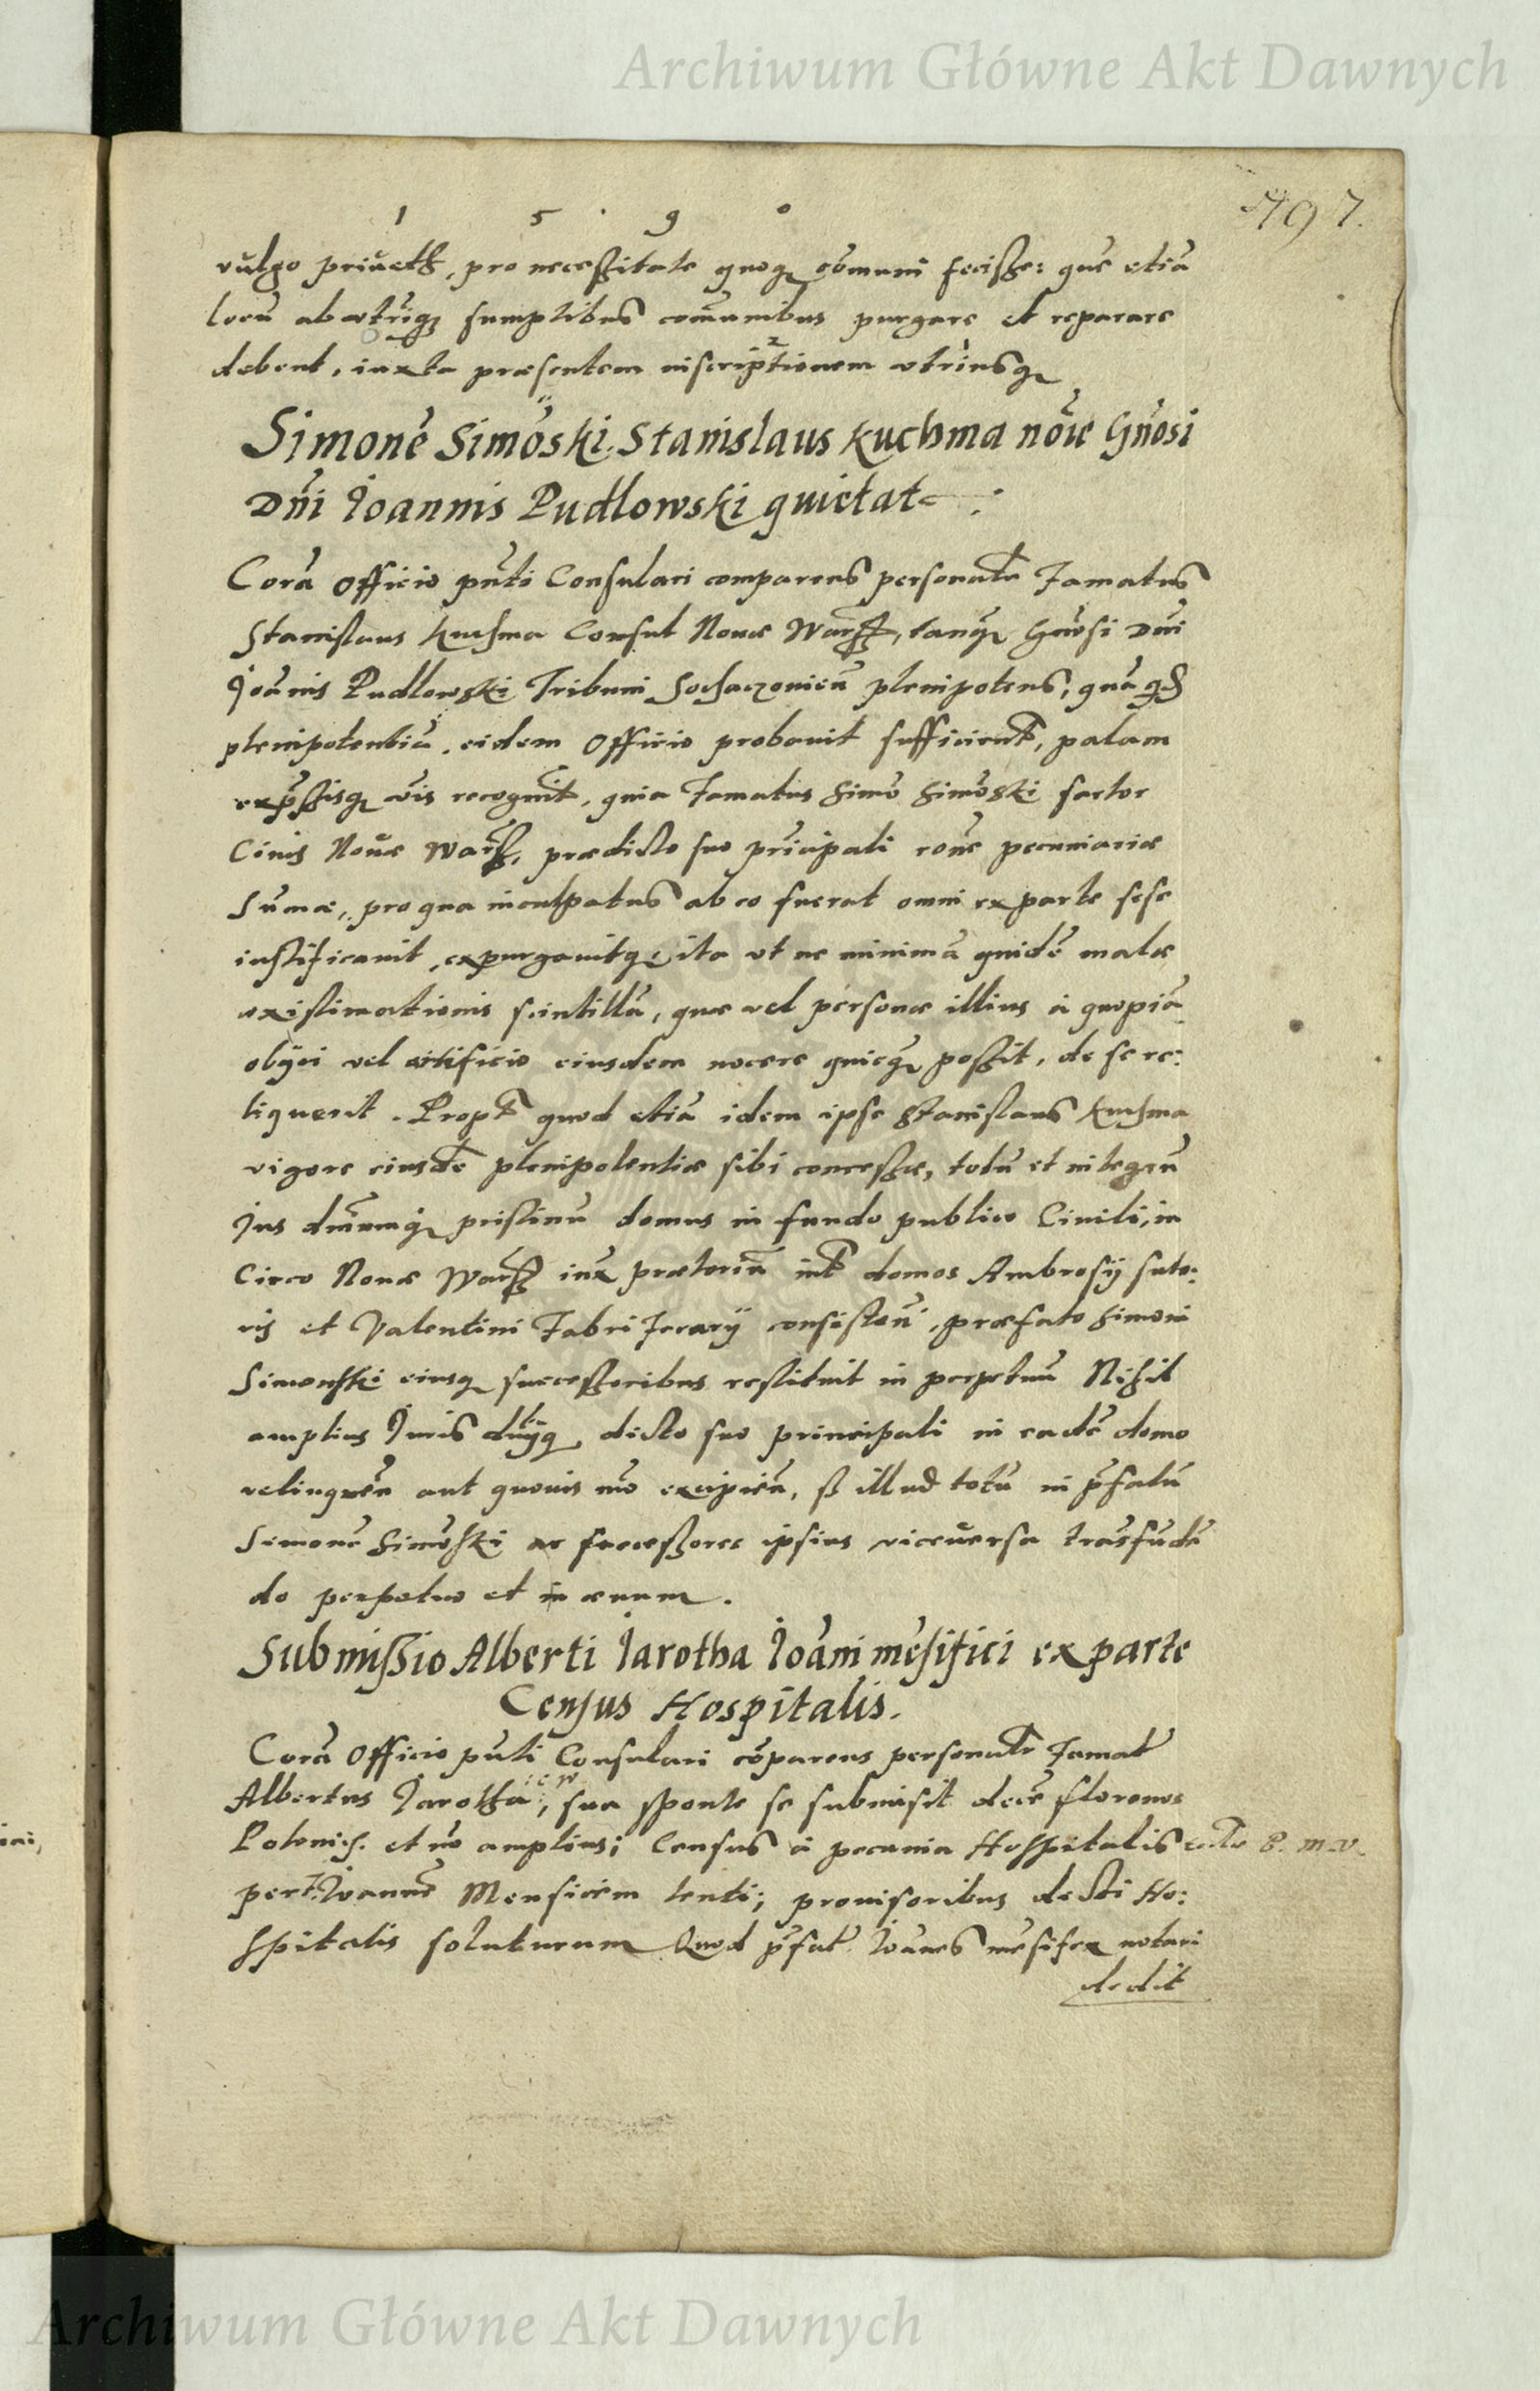 Archiwum Główne Akt Dawnych
1 5 9 0
497.
vulgo priueth, pro necessitate quoq comuni fecisse: que etiā
locū ab utrūq sumptibus comunibus purgare et reparare
debent, iuxta præsentem inscriptionem utriusq
Simonē Simōski Stanislaus Kuchma nōie Gnōsi
Dñi Joannis Pudlowski quietat
Corā Officio pñti Consulari comparens personalr Famatus
Stanislaus Kuchma Consul Nouæ Warss, tanq Gnōsi Dñi
Joānis Pudlowski Tribuni Sochaczouieñ plenipotens, quā qd
plenipotentiā, eidem Officio probauit sufficient, palam
exprssisq uīs recognuit, quia Famatus Simō Simōski sartor
Ciuis Nouæ Warss, prædicto suo prīcipali rone pecuniariæ
Sūmæ, pro qua inculpatus ab eo fuerat omni ex parte sese
iustificauit, expurgauitq, ita ut ne minimā quidē malæ
existimationis scintillā, quæ vel personæ illius à quopiā
obijci vel artificio eiusdem nocere quicq possit, de se re:
liquerit. Propt quod etiā idem ipse Stanislaus Kuchma
vigore eiusdē plenipotentiæ sibi concessæ, totū et integrū
Jus dñiumq pristinū domus in fundo publico Ciuili, in
Circo Nouæ Warss iux prætoriū int domos Ambrosij suto:
ris et Valentini Fabri Ferarij consisten, præfato Simoni
Simonski eiusq successoribus restituit in perpetuū Nihil
amplius Juris dñijq dicto suo principali in eadē domo
relinqueñ aut quouis mō excipieñ, sz illud totū in pfatū
Simonē Simōski ac successores ipsius viceuersa trāsfudē
do perpetuo et in æuum.
Submissio Alberti Jarotha Joāni mēsifici ex parte
Census Hospitalis.
Corā Officio pñti Consulari cōparens personalr Famat
Albertus Jarotha, sua sponte se submisit decē florenos
Polonich. et nō amplius; Census à pecunia Hospitalis
per Joannē Mensicem tenti; prouisoribus dicti Ho:
spitalis soluturum Quod pfat Joānes mēsifex notari
dedit
Archiwum Główne Akt Dawnych